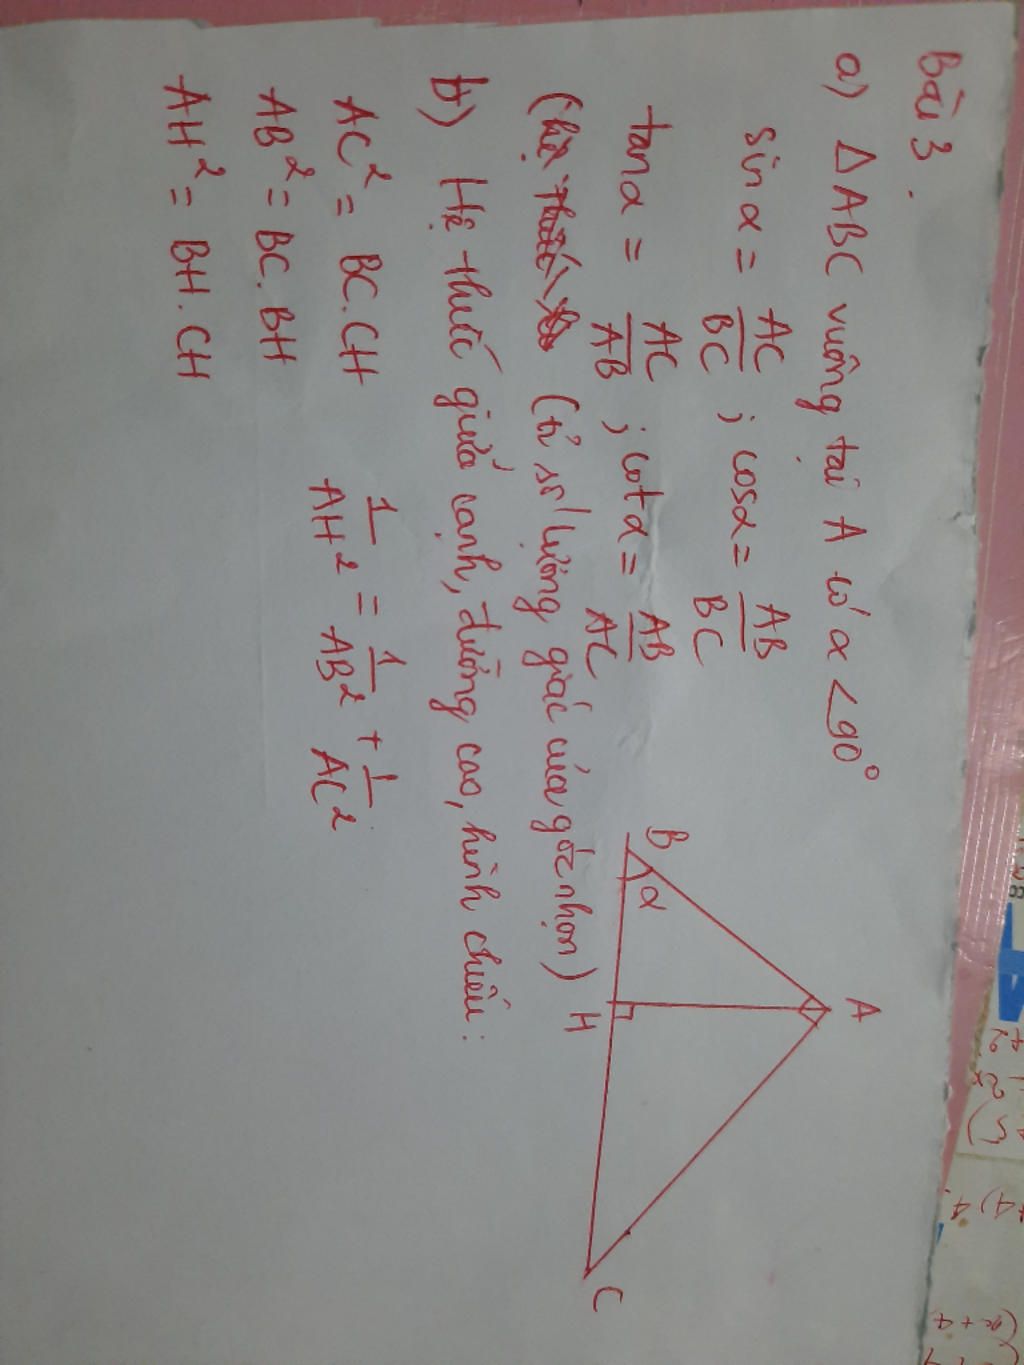 Bài 3.
a) △ABC vuông tại A có α < 90°
sin α = AC/BC ; cos α = AB/BC
tan α = AC/AB ; cot α = AB/AC
(tỉ số lượng giác của góc nhọn)
b) Hệ thức giữa cạnh, đường cao, hình chiếu :
AC² = BC.CH
1/AH² = 1/AB² + 1/AC²
AB² = BC.BH
AH² = BH.CH
A
B
α
H
C